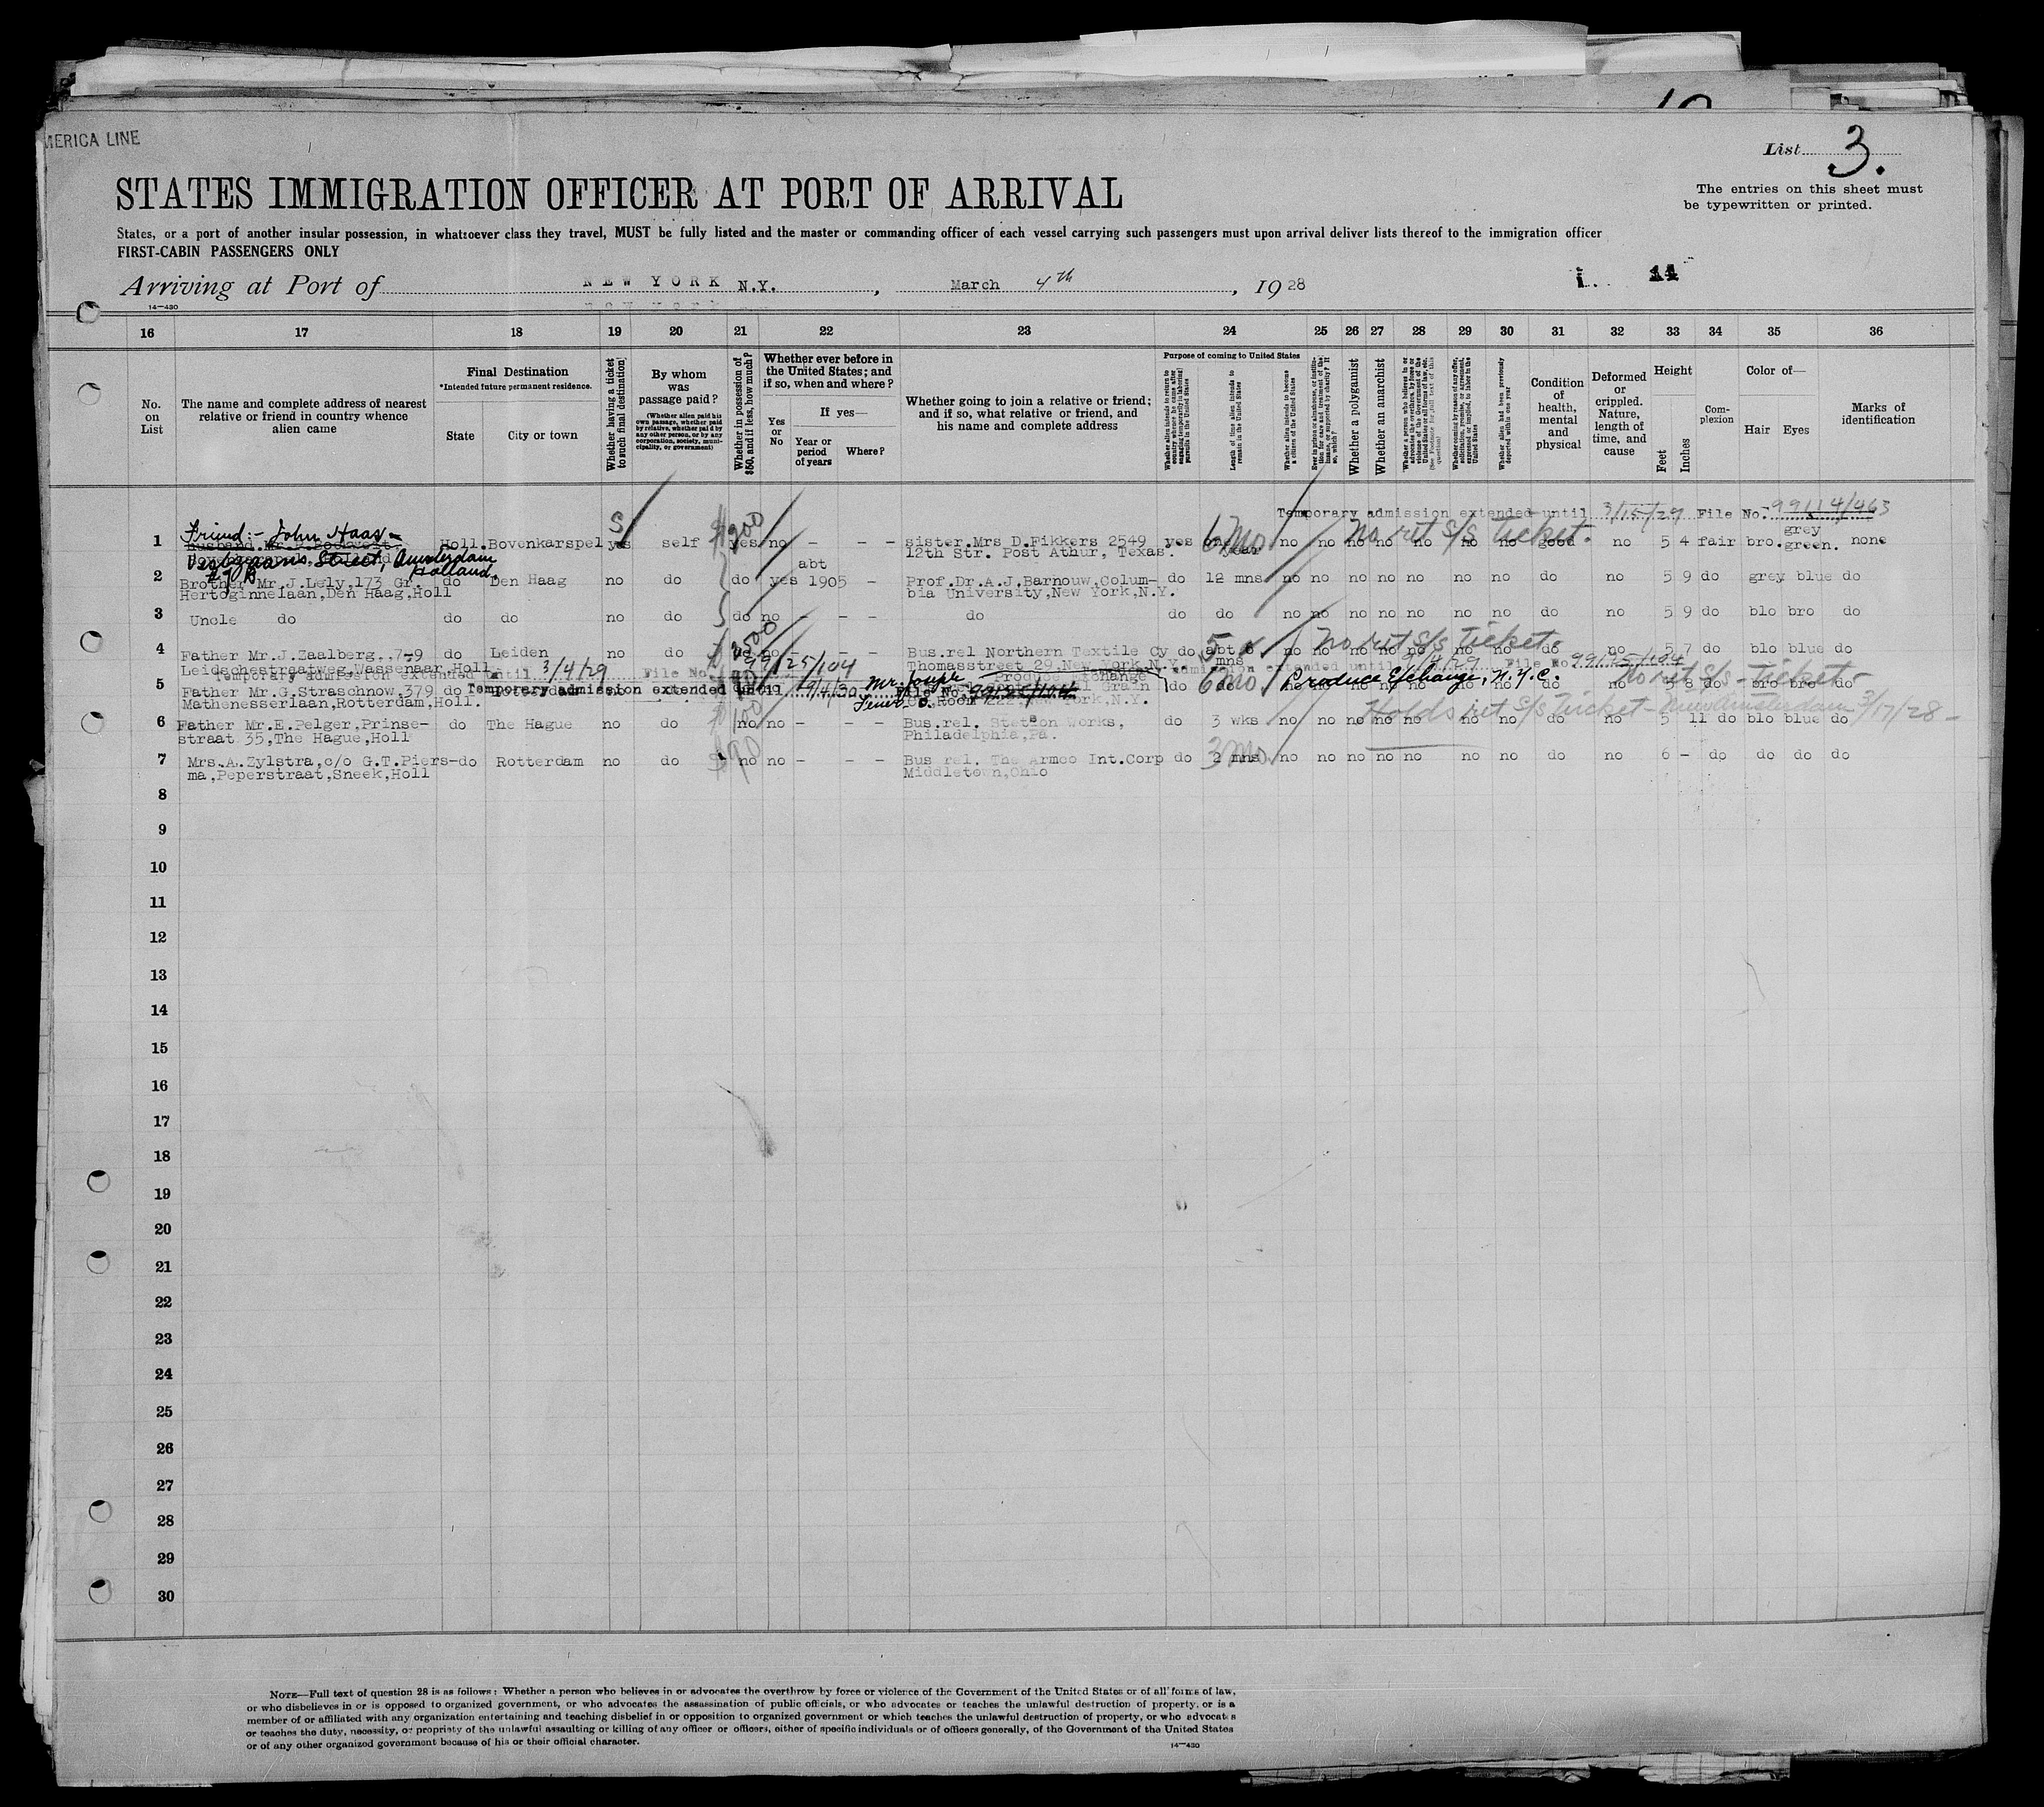 MERICA LINE
List 3.
STATES IMMIGRATION OFFICER AT PORT OF ARRIVAL
The entries on this sheet must
be typewritten or printed.
States, or a port of another insular possession, in whatsoever class they travel, MUST be fully listed and the master or commanding officer of each vessel carrying such passengers must upon arrival deliver lists thereof to the immigration officer
FIRST-CABIN PASSENGERS ONLY
Arriving at Port of NEW YORK N.Y., March 4th, 1928
14
14—430
16 17 18 19 20 21 22 23 24 25 26 27 28 29 30 31 32 33 34 35 36
No. on List
The name and complete address of nearest relative or friend in country whence alien came
Final Destination
*Intended future permanent residence.
State
City or town
Whether having a ticket to such final destination
By whom was passage paid?
(Whether alien paid his own passage, whether paid by relative, whether paid by any other person, or by any corporation, society, municipality, or government)
Whether in possession of $50, and if less, how much?
Whether ever before in the United States; and if so, when and where?
Yes or No
If yes—
Year or period of years
Where?
Whether going to join a relative or friend; and if so, what relative or friend, and his name and complete address
Purpose of coming to United States
Whether alien intends to return to country whence he came after engaging temporarily in laboring pursuits in the United States
Length of time alien intends to remain in the United States
Whether alien intends to become a citizen of the United States
Ever in prison or almshouse, or institution for care and treatment of the insane, or supported by charity? If so, which?
Whether a polygamist
Whether an anarchist
Whether a person who believes in or advocates the overthrow by force or violence of the Government of the United States or all forms of law, etc.
(See Footnote for full text of this question)
Whether coming by reason of any offer, solicitation, promise, or agreement, expressed or implied, to labor in the United States
Whether alien had been previously deported within one year
Condition of health, mental and physical
Deformed or crippled. Nature, length of time, and cause
Height
Feet
Inches
Complexion
Color of—
Hair Eyes
Marks of identification
Temporary admission extended until 3/15/29 File No. 99114/463
Friend:- John Haas-
1 Holl. Bovenkarspel yes self $200 yes no – – – sister Mrs D.Fikkers 2549 yes 6 mo no no no no no no no good no 5 4 fair bro. grey green. none
12th Str. Post Athur, Texas. year
No ret s/s ticket.
Street, Amsterdam
Holland.
2 Brother Mr.J.Lely,173 Gr. do Den Haag no do do yes abt 1905 – Prof.Dr.A.J.Barnouw,Colum- do 12 mns no no no no no no no do no 5 9 do grey blue do
Hertoginnelaan,Den Haag,Holl bia University,New York,N.Y.
3 Uncle do do do no do do no – – – do do do no no no no no no no do no 5 9 do blo bro do
4 Father Mr.J.Zaalberg,.7-9 do Leiden no do $2500 no – – – Bus.rel Northern Textile Cy do abt 6 no no no no no no no do no 5 7 do blo blue do
No ret s/s ticket.
Leidschestraatweg,Wassenaar,Holl Thomasstreet 29,New York,N.Y. mns
Temporary admission extended until 3/4/29 File No. 99125/104
admission extended until 9/4/29 File No. 99125/104
5 Father Mr.G.Straschnow,379 do Rotterdam Mr. Joseph Produce Exchange Grain do 6 mo. do no no no no no no no do no 5 8 do bro bro do
Produce Exchange, N.Y.C. No ret s/s - ticket-
Temporary admission extended until 9/4/30 File No. 99125/104
Mathenesserlaan,Rotterdam,Holl. Room 222,New York,N.Y.
6 Father Mr.E.Pelger,Prinse- do The Hague no do $100 no no – – – Bus.rel. Stetson Works, do 3 wks no no no no no no no do no 5 11 do blo blue do
Holds ret s/s ticket - New Amsterdam 3/17/28-
straat 35,The Hague,Holl Philadelphia,Pa.
7 Mrs.A.Zylstra,c/o G.T.Piers- do Rotterdam no do $90 no no – – – Bus rel. The Armco Int.Corp do 3 mo. 2 mns no no no no no no do no 6 – do do do do
ma,Peperstraat,Sneek,Holl Middletown,Ohio
8
9
10
11
12
13
14
15
16
17
18
19
20
21
22
23
24
25
26
27
28
29
30
NOTE—Full text of question 28 is as follows: Whether a person who believes in or advocates the overthrow by force or violence of the Government of the United States or of all forms of law,
or who disbelieves in or is opposed to organized government, or who advocates the assassination of public officials, or who advocates or teaches the unlawful destruction of property, or is a
member of or affiliated with any organization entertaining and teaching disbelief in or opposition to organized government or which teaches the unlawful destruction of property, or who advocates
or teaches the duty, necessity, or propriety of the unlawful assaulting or killing of any officer or officers, either of specific individuals or of officers generally, of the Government of the United States
or of any other organized government because of his or their official character.
14—430